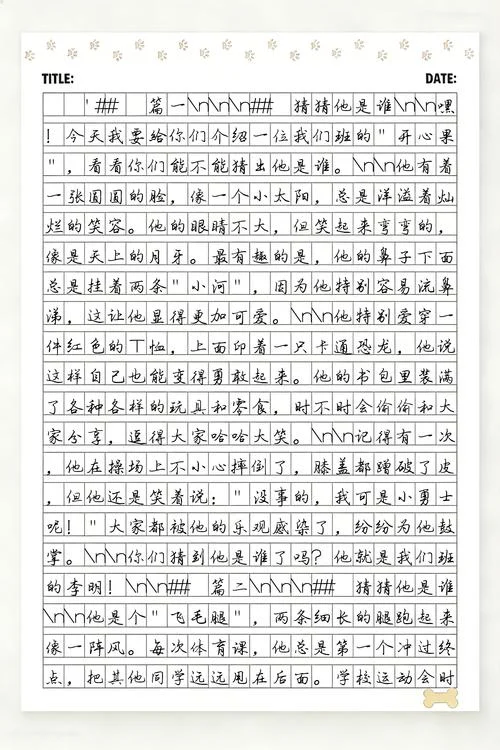 TITLE: DATE:
'## 篇一\n\n\n## 猜猜他是谁\n\n嘿
！今天我要给你们介绍一位我们班的"开心果
"，看看你们能不能猜出他是谁。\n\n他有着
一张圆圆的脸，像一个小太阳，总是洋溢着灿
烂的笑容。他的眼睛不大，但笑起来弯弯的，
像是天上的月牙。最有趣的是，他的鼻子下面
总是挂着两条"小河"，因为他特别容易流鼻
涕，这让他显得更加可爱。\n\n他特别爱穿一
件红色的T恤，上面印着一只卡通恐龙，他说
这样自己也能变得勇敢起来。他的书包里装满
了各种各样的玩具和零食，时不时会偷偷和大
家分享，逗得大家哈哈大笑。\n\n记得有一次
，他在操场上不小心摔倒了，膝盖都蹭破了皮
，但他还是笑着说："没事的，我可是小勇士
呢！"大家都被他的乐观感染了，纷纷为他鼓
掌。\n\n你们猜到他是谁了吗？他就是我们班
的李明！\n\n## 篇二\n\n\n## 猜猜他是谁
\n\n他是个"飞毛腿"，两条细长的腿跑起来
像一阵风。每次体育课，他总是第一个冲过终
点，把其他同学远远甩在后面。学校运动会时